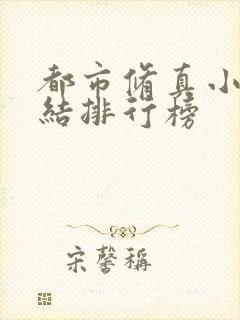 都市脩真小
結排行榜
宋馨稱